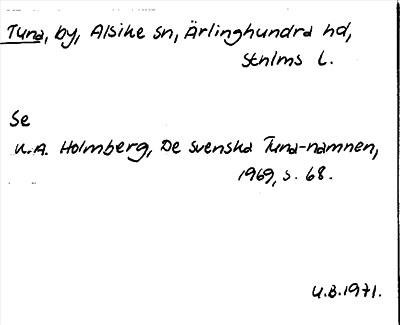 Tuna, by, Alsike sn, Ärlinghundra hd,
Sthlms L.
Se
K.A. Holmberg, De svenska Tuna-namnen,
1969, s. 68.
U.B.1971.